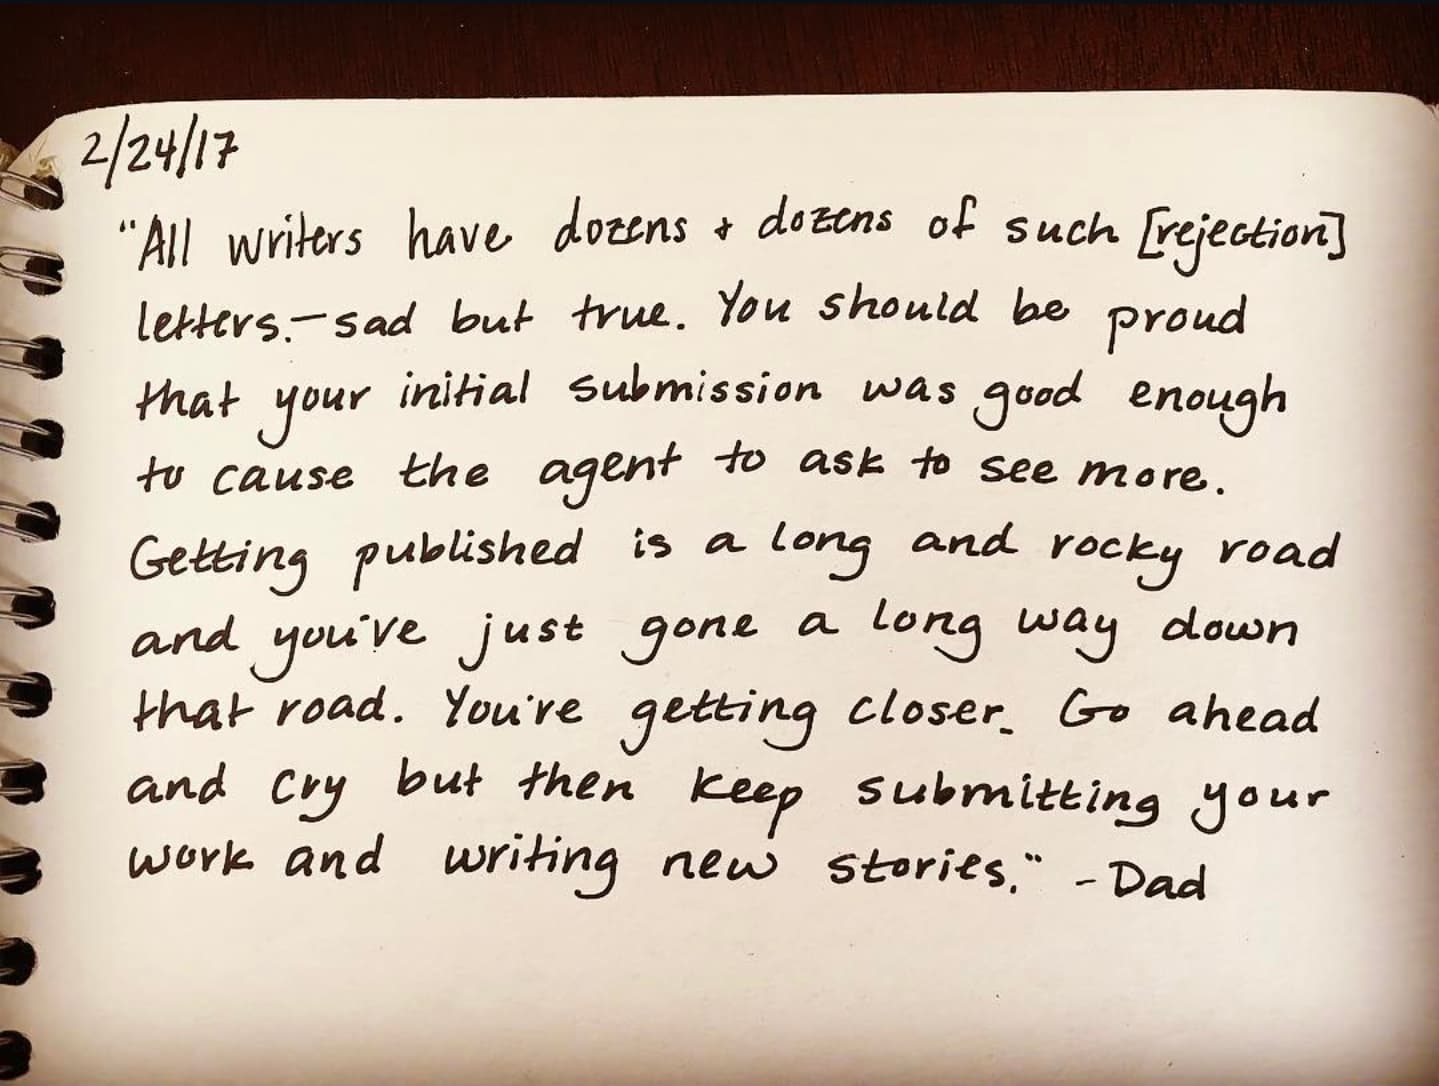 2/24/17
"All writers have dozens + dozens of such [rejection]
letters.—sad but true. You should be proud
that your initial submission was good enough
to cause the agent to ask to see more.
Getting published is a long and rocky road
and you've just gone a long way down
that road. You're getting closer. Go ahead
and cry but then keep submitting your
work and writing new stories." - Dad